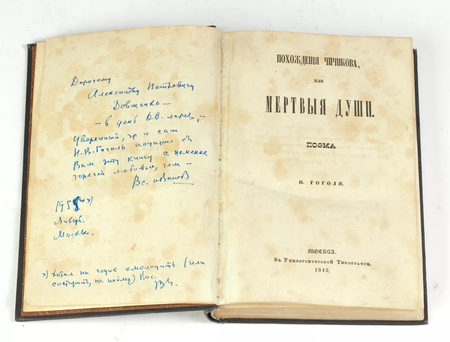 Дорогому
Александру Петровичу
Довженко —
— в день
Уверенный, что и сам
Н.В. Гоголь подарил бы
Вам эту книгу с не менее
горячей любовью, чем —
Вс. Иванов
Январь.
Москва.
*) Хотел на годик омолодить (или
состарить, не пойму) Вас.
ПОХОЖДЕНІЯ ЧИЧИКОВА,
ИЛИ
МЕРТВЫЯ ДУШИ.
ПОЭМА
Н. ГОГОЛЯ.
МОСКВА.
Въ Университетской Типографіи.
1842.